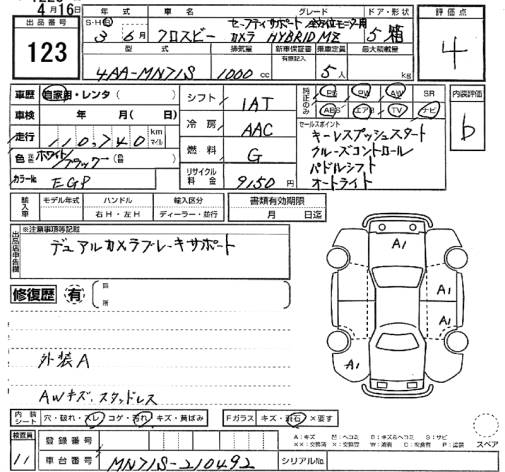 4月16日
出品番号
123
年式
S・H・R 3年6月
車名
クロスビー
グレード
セーフティサポート 全方位モニタ用
カメラ HYBRID MZ
ドア・形状
5 箱
評価点
4
型式
4AA-MN71S
排気量
1000 cc
新車保証書
有原記入
乗車定員
5人
最大積載量
kg
車歴 自家用・レンタ( )
車検 年 月( 日)
走行 110,740 km マイル
色 ホワイト/ブラック (色 )
カラーNo. EGP
シフト 1AT
冷房 AAC
燃料 G
リサイクル料金 9150円
純正のみ
PS PW AW SR
ABS エアB TV ナビ
セールスポイント
キーレスプッシュスタート
クルーズコントロール
パドルシフト
オートライト
内装評価
b
輸入車
モデル年式
ハンドル
右H・左H
輸入区分
ディーラー・並行
書類有効期限
月 日迄
出品店申告欄
※注意事項等記載
デュアルカメラブレーキサポート
修復歴 有
箇所
外装A
AWキズ、スタッドレス
A1
A1
A1
A1
内装シート 穴・破れ・スレ コゲ・汚れ・キズ・黄ばみ
Fガラス キズ・飛石・×要す
検査員
11
登録番号
車台番号 MN71S-210492
シリアルNo.
スペア